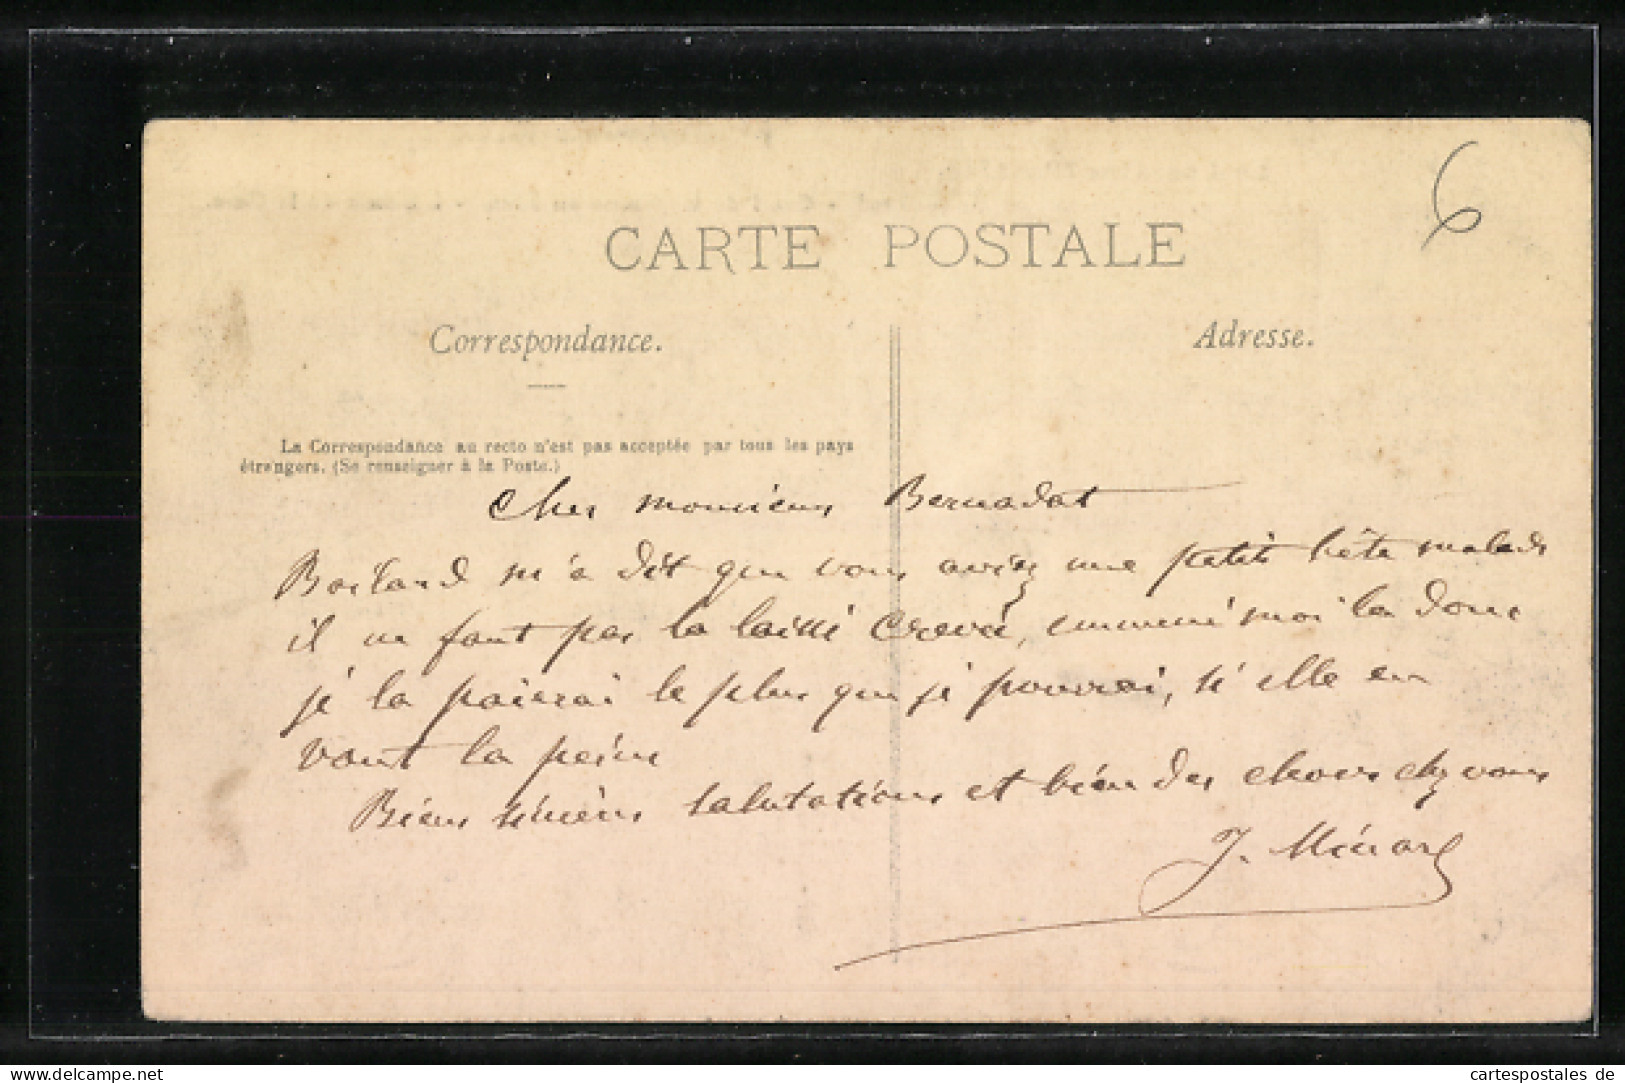 6
CARTE POSTALE
Correspondance.
Adresse.
La Correspondance au recto n'est pas acceptée par tous les pays
étrangers. (Se renseigner à la Poste.)
Cher monsieur Bernadat
m'a dit que vous aviez une petite bête malade
il ne faut pas la laissé crevée, emmené moi la donc
je la paierai le plus que je pourrai, si elle en
vaut la peine
Bien sincères salutations et bien des choses chez vous
J. Ménard
www.delcampe.net
cartespostales de